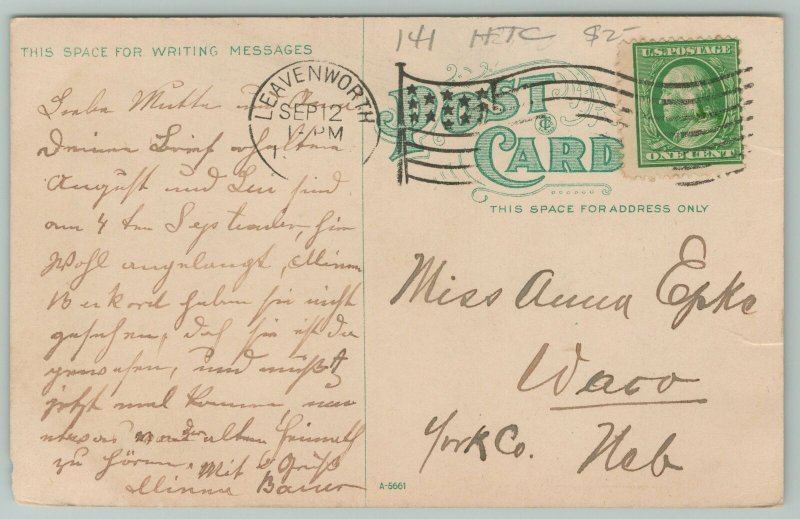 141 HTC $25
THIS SPACE FOR WRITING MESSAGES
LEAVENWORTH
SEP 12
1-PM
U.S. POSTAGE
ONE CENT
POST
CARD
THIS SPACE FOR ADDRESS ONLY
Liebe
Deinen Brief erhalten
August und sind
am 4 ten September, hier
Wohl angelangt, Minna
haben sie nicht
gesehen, daß sie ist da
gewesen, und
jetzt mal kommen, um
etwas von der alten Heimath
zu hören. Mit Gruß
Minna Bauer
Miss Anna Epke
Waco
York Co. Neb
A-5661